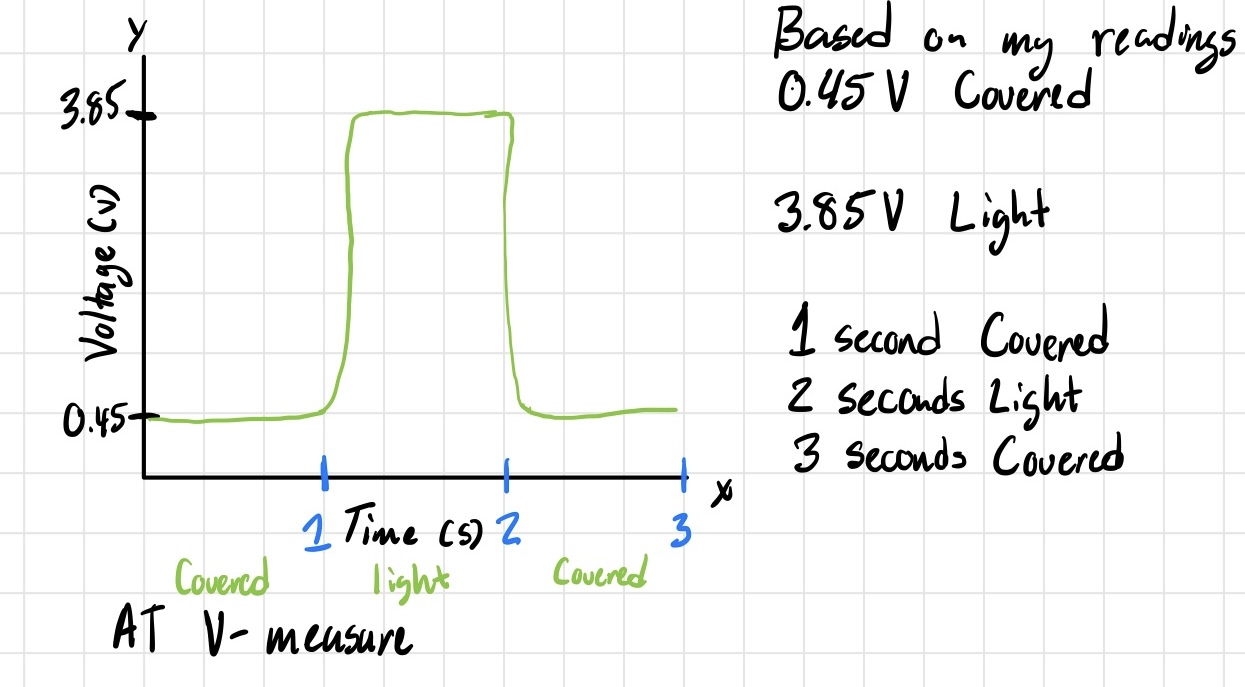 Y
3.85
Voltage (v)
0.45
1 Time (s) 2 3
x
Covered light Covered
AT V-measure
Based on my readings
0.45 V Covered
3.85 V Light
1 second Covered
2 seconds Light
3 seconds Covered